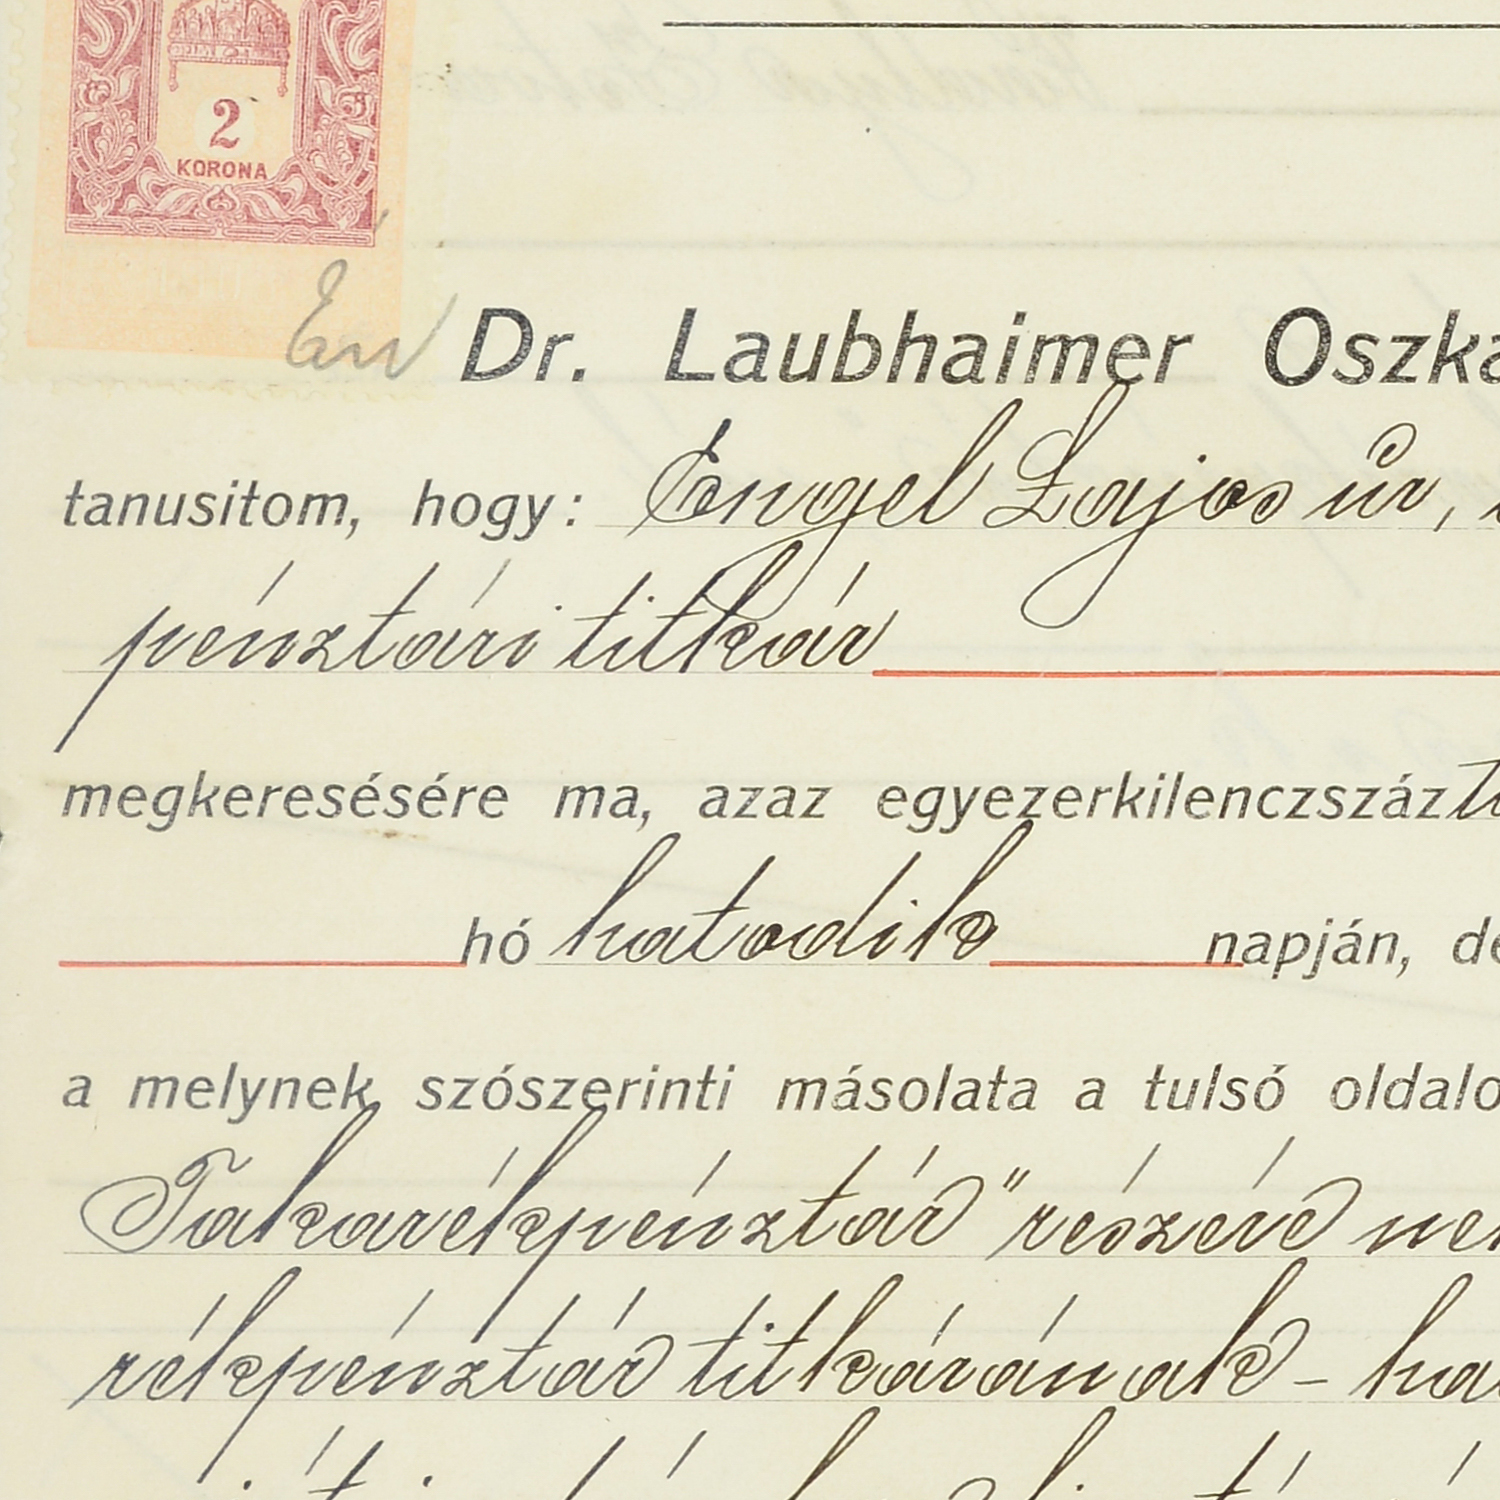 2
KORONA
Dr. Laubhaimer Oszká
tanusitom, hogy: Engel Lajos úr,
pénztári titkár
megkeresésére ma, azaz egyezerkilenczszáz
hó hatodik napján, de
a melynek szószerinti másolata a tulsó oldalo
Takarékpénztár" részére
rékpénztár titkárának -